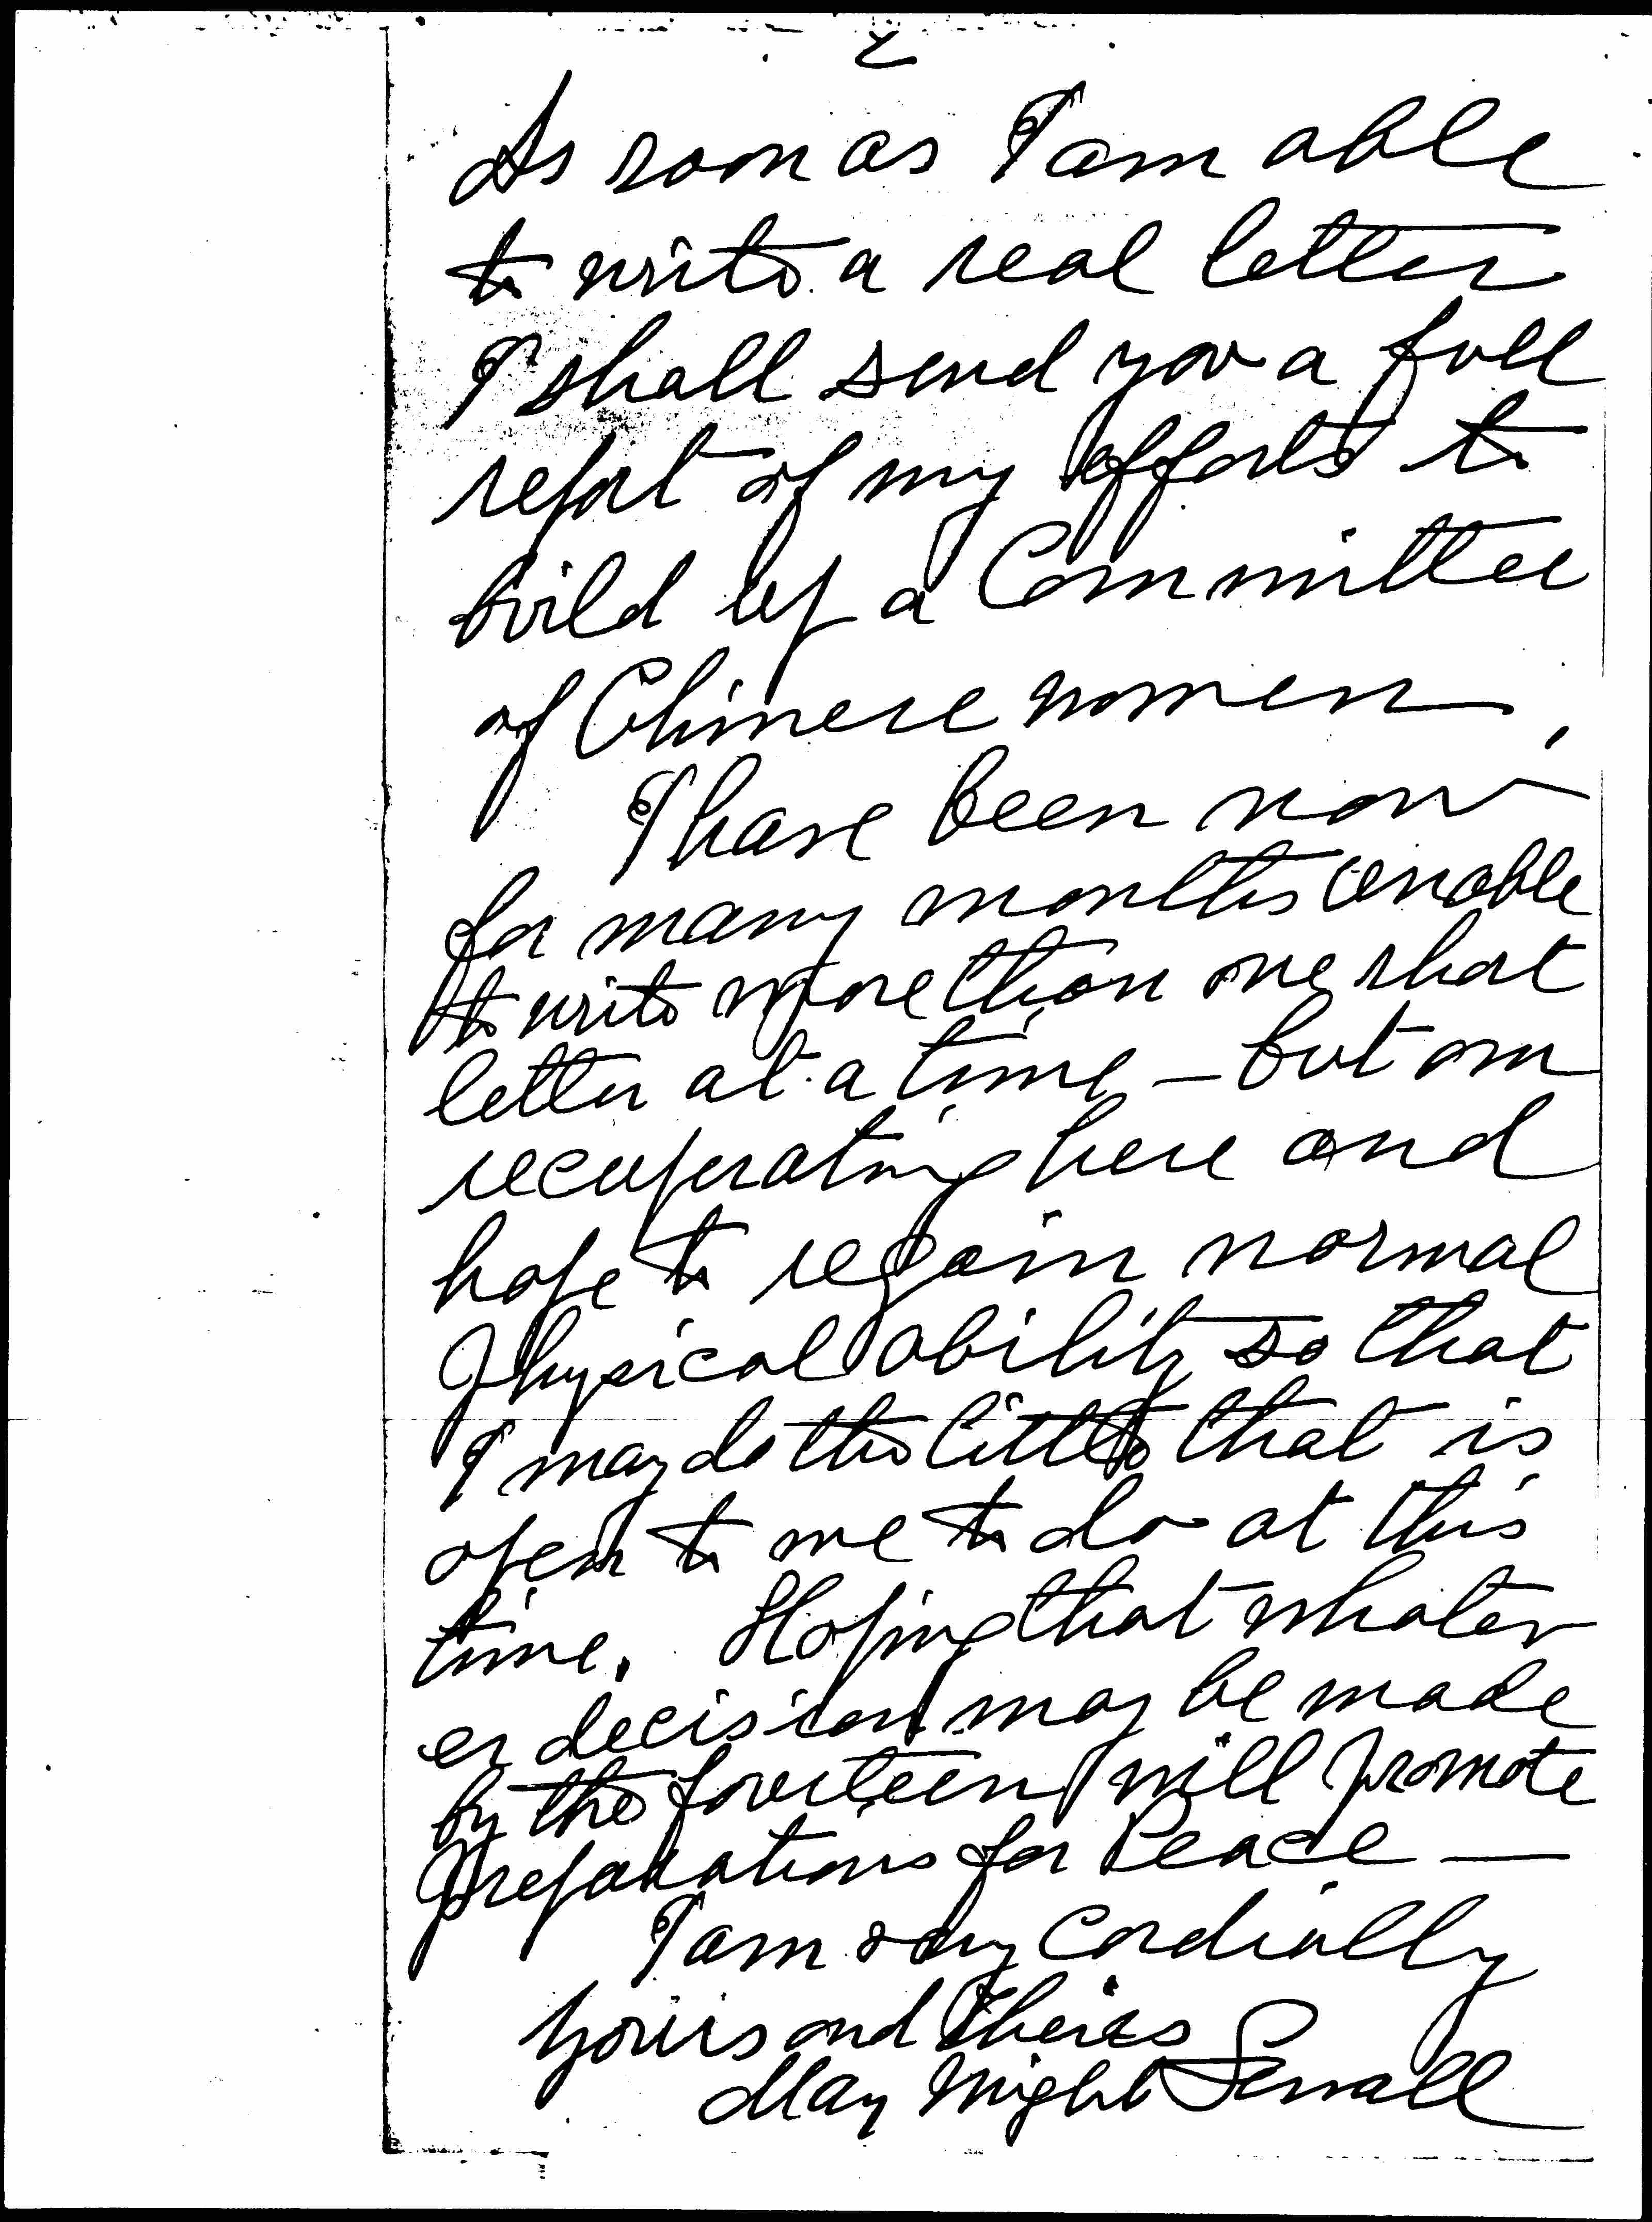 2
As soon as I am able
to write a real letter
I shall send you a full
report of my efforts to
build up a Committee
of Chinese women.
I have been now
for many months unable
to write more than one short
letter at a time – but am
recuperating here and
hope to regain normal
physical ability so that
I may do the little that is
open to me to do at this
time. Hoping that whatev
er decision may be made
by the fourteen will promote
preparations for Peace –
I am very Cordially
yours and theirs
May Wright Sewall